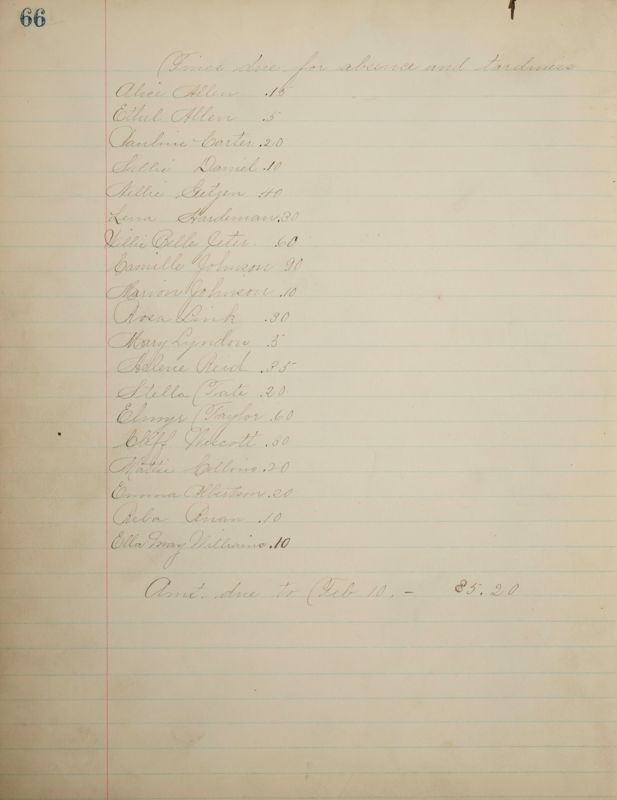 66
Fines due for absence and tardiness
Alice Allen .15
Ethel Allen .5
Pauline Carter .20
Sallie Daniel .10
Nellie Getzen 40
Lena Hardeman .30
Willie Belle Jeter. 60
Camille Johnson 90
Marion Johnson .10
Rosa Link .30
Mary Lyndon .5
Helene Reid .35
Stella Tate .20
Elmyr Taylor .60
Cliff .50
Mattie Collins .20
Emma .20
Reba .10
Ella May Williams .10
Amt. due to Feb 10. - $5.20